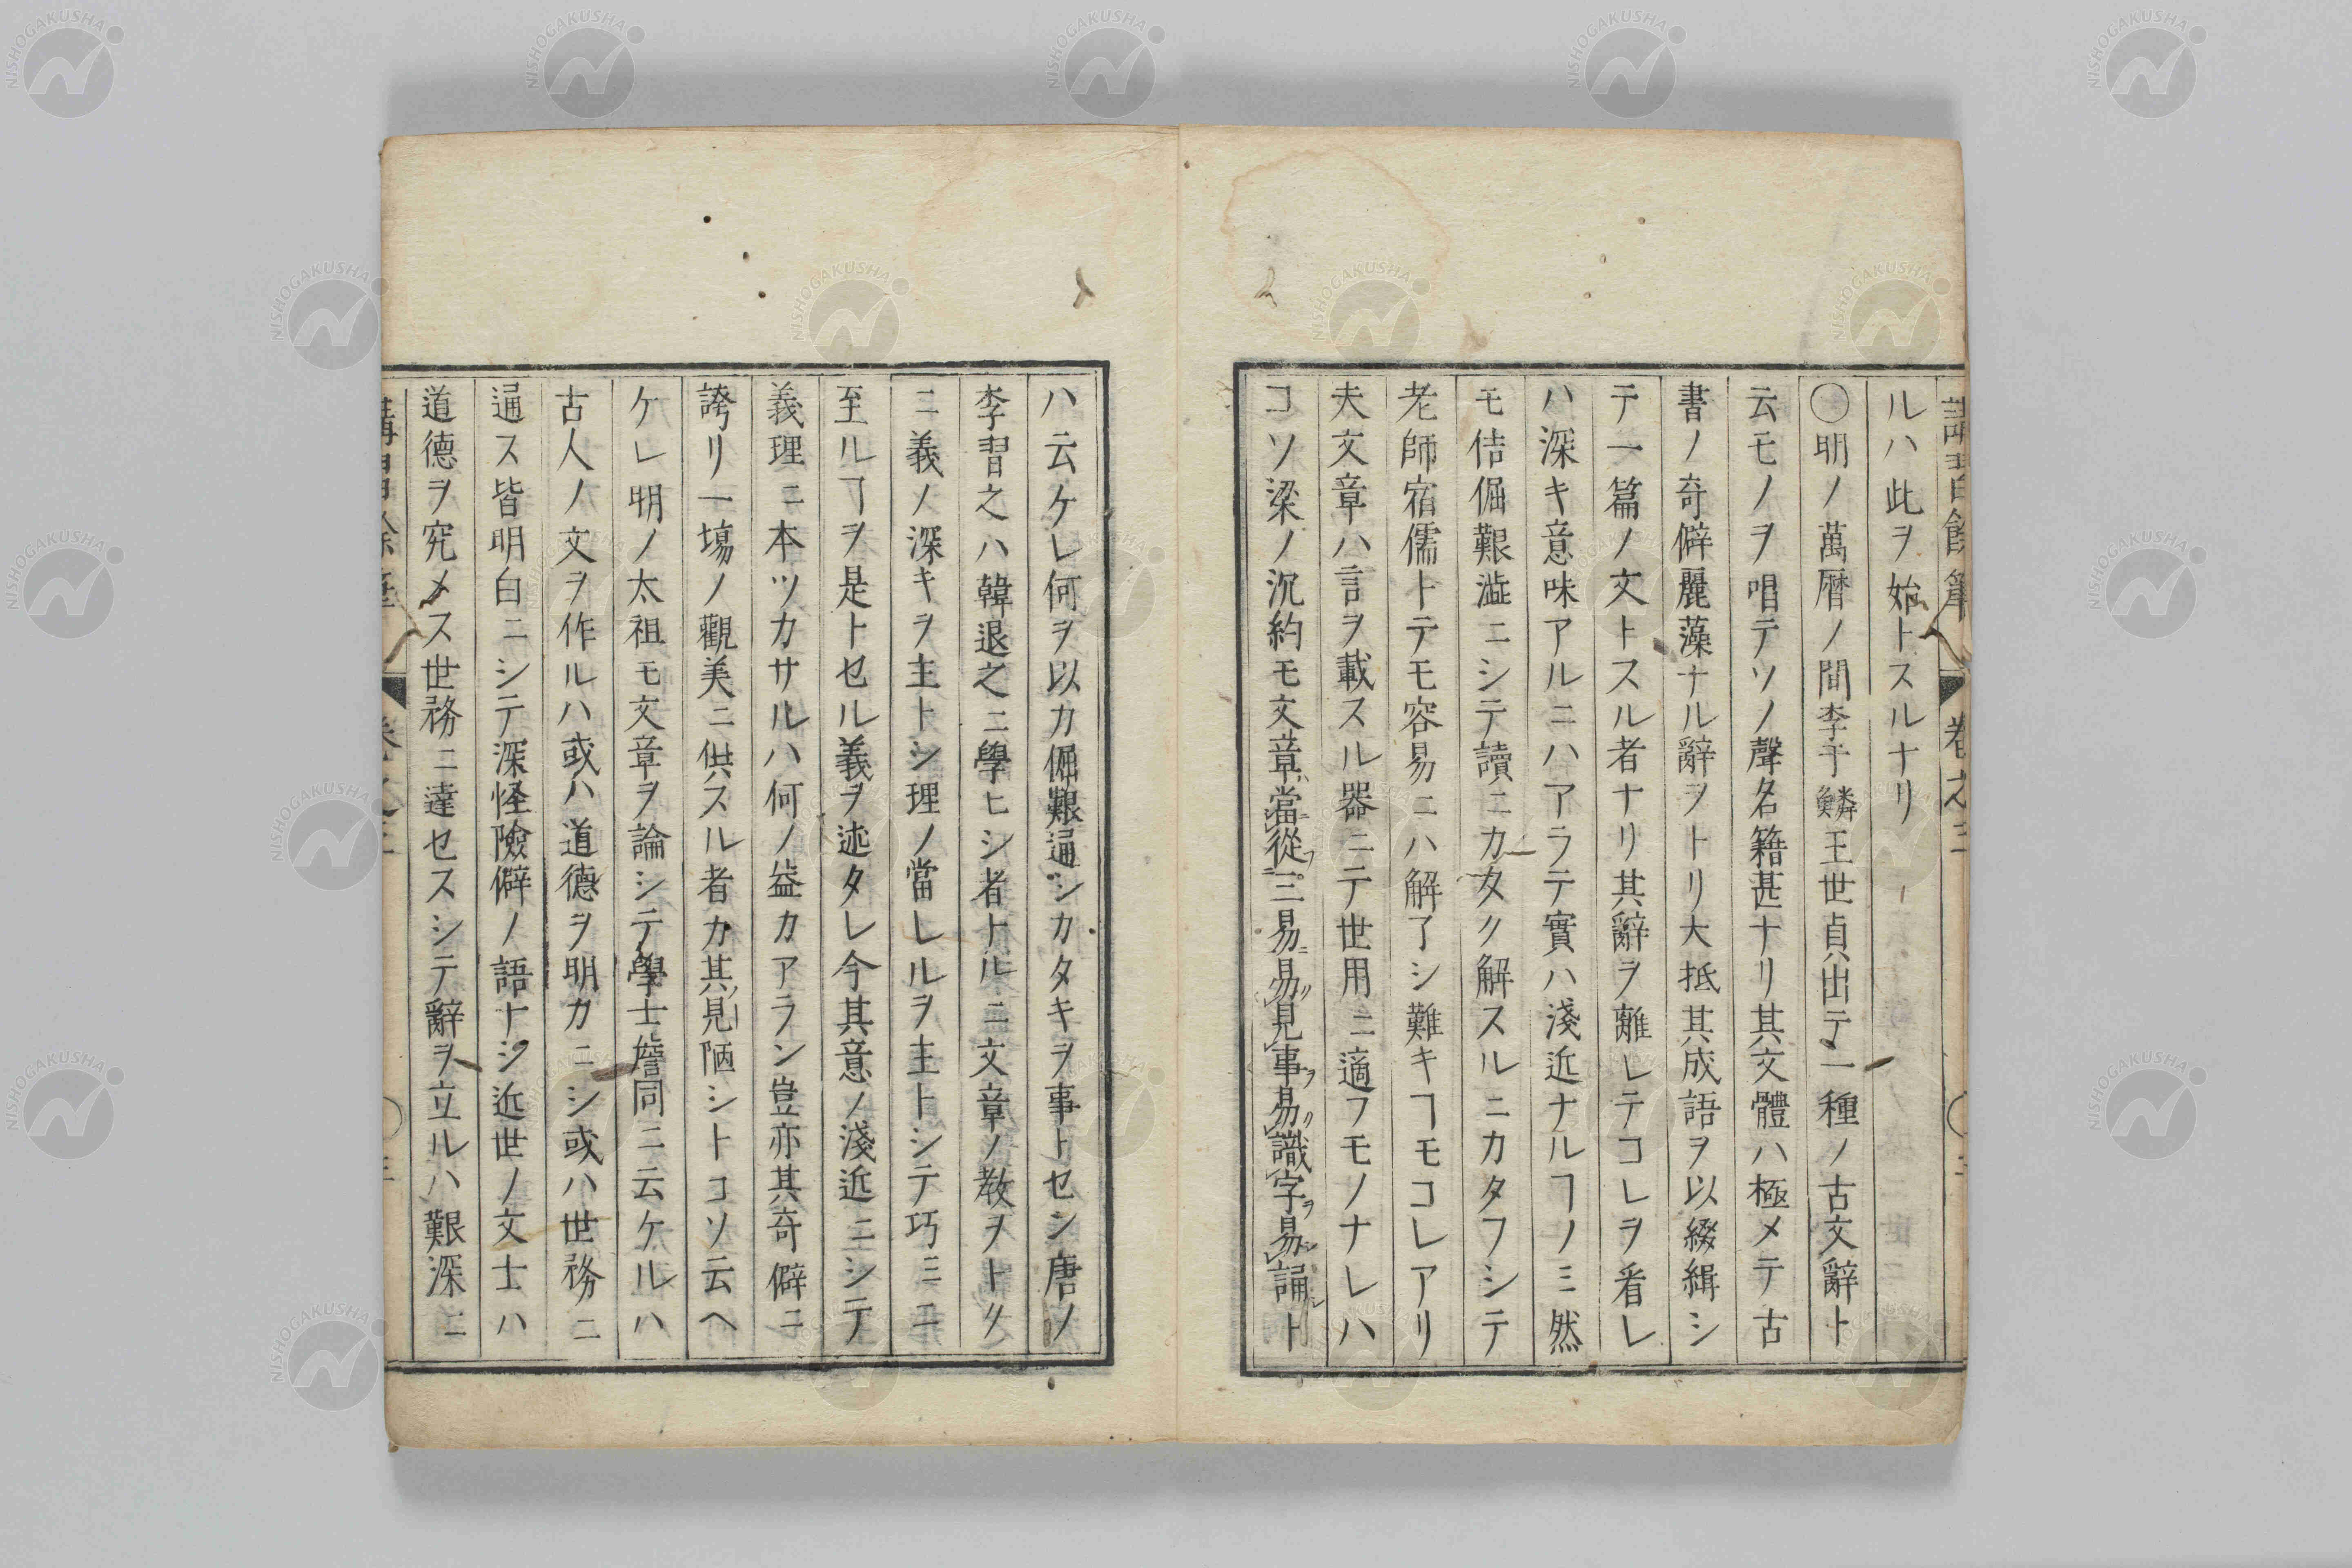 ルハ此ヲ始トスルナリ
〇明ノ萬曆ノ間李于鱗王世貞出テ一種ノ古文辭ト
云モノヲ唱テソノ聲名籍甚ナリ其文體ハ極メテ古
書ノ奇僻麗藻ナル辭ヲトリ大抵其成語ヲ以綴緝シ
テ一篇ノ文トスル者ナリ其辭ヲ離レテコレヲ看レ
ハ深キ意味アルニハアラテ實ハ淺近ナルヿノミ然
モ佶倔艱澁ニシテ讀ニカタク解スルニカタフシテ
老師宿儒トテモ容易ニハ解了シ難キヿモコレアリ
夫文章ハ言ヲ載スル器ニテ世用ニ適フモノナレハ
コソ梁ノ沉約モ文章當從三易易見事易識字易誦ト
ハ云ケレ何ヲ以カ倔艱通シカタキヲ事トセン唐ノ
李習之ハ韓退之ニ學ヒシ者トルニ文章ノ敎ヲトク
ニ義ノ深キヲ主トシ理ノ當レルヲ主トシテ巧ミニ
至ルヿヲ是トセル義ヲ述タレ今其意ノ淺近ニシテ
義理ニ本ツカサルハ何ノ益カアラン豈亦其奇僻ニ
誇リ一塲ノ觀美ニ供スル者カ其見陋シトコソ云ヘ
ケレ明ノ太祖モ文章ヲ論シテ學士詹同ニ云ケルハ
古人ノ文ヲ作ルハ或ハ道德ヲ明カニシ或ハ世務ニ
通ス皆明白ニシテ深怪險僻ノ語ナシ近世ノ文士ハ
道德ヲ究メス世務ニ達セスシテ辭ヲ立ルハ艱深ニ